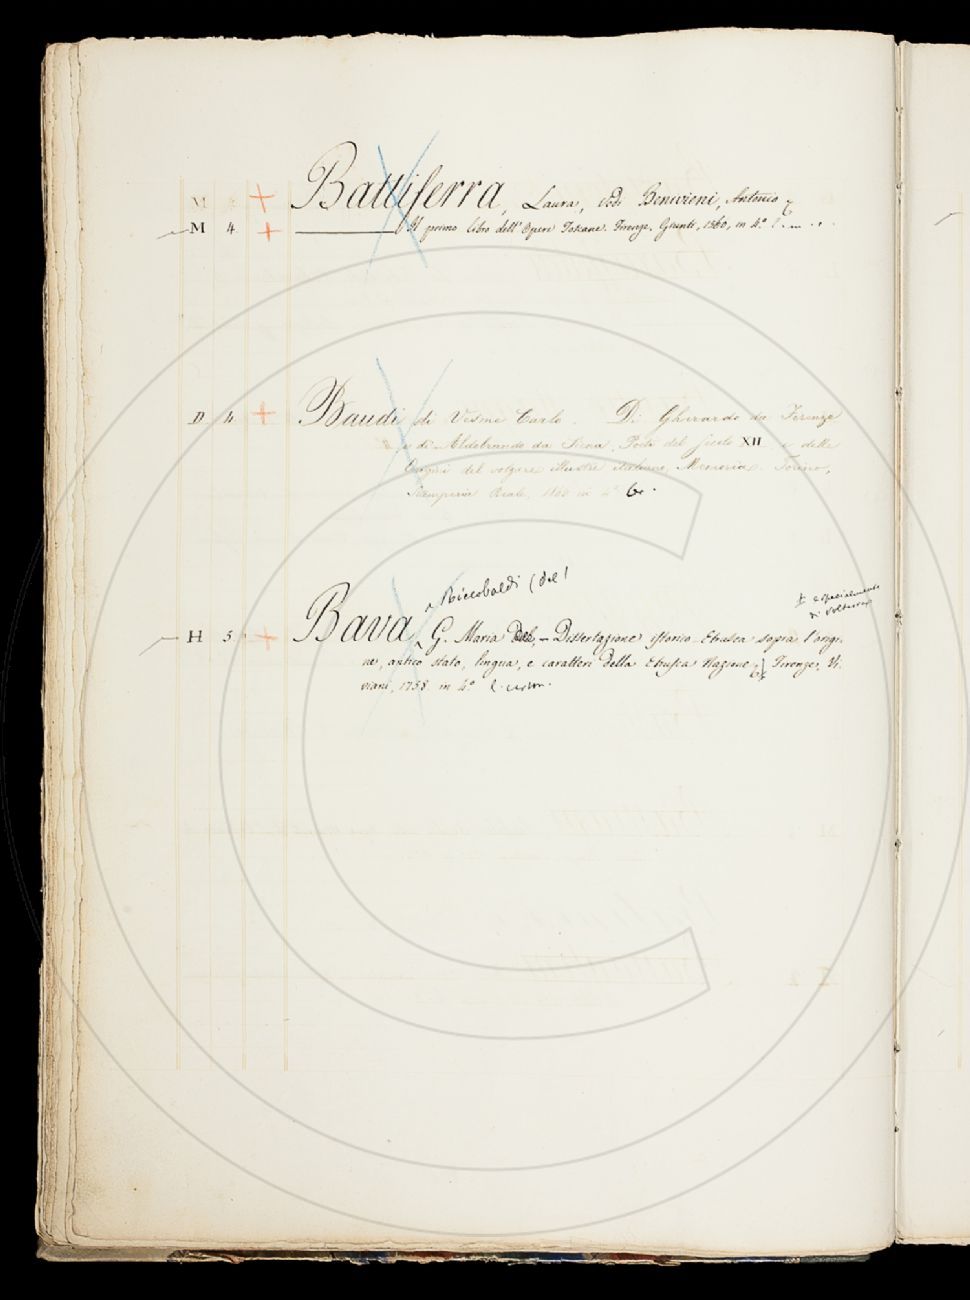 M Battiferra, Laura, Vedi Benivieni, Antonio
M 4. Il primo libro dell'Opere Toscane. Firenze, Giunti, 1560, in 4.º
D 4. Baudi di Vesme Carlo. Di Gherardo da Firenze
e di Aldobrando da Siena, Poeti del secolo XII e delle
Origini del volgare illustre italiano, Memoria. Torino,
Stamperia Reale, 1866 in 4º
Riccobaldi (del)
± especialmente
di Volterra
H 5. Bava, G. Maria Dissertazione istorico-Etrusca sopra l'origi-
ne, antico stato, lingua, e caratteri della Etrusca Nazione, Firenze, Vi-
viani, 1758. in 4.º